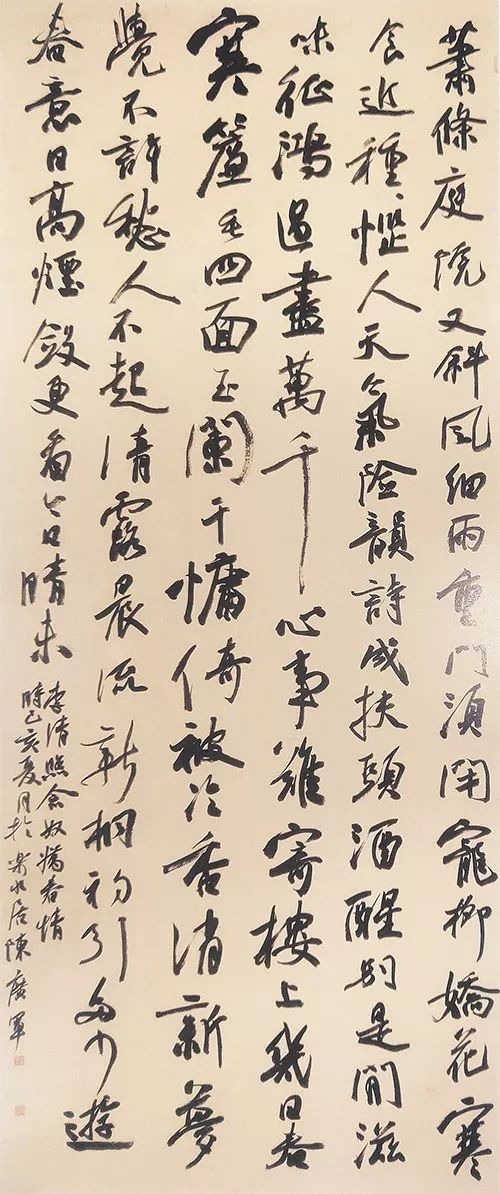 蕭條庭院又斜風細雨重門須閉寵柳嬌花寒
食近種〻惱人天氣險韻詩成扶頭酒醒別是閒滋
味征鴻過盡萬千心事難寄樓上幾日春
寒簾垂四面玉闌干慵倚被冷香消新夢
覺不許愁人不起清露晨流新桐初引多少遊
春意日高煙斂更看今日晴未
李清照念奴嬌春情
時己亥夏月於樂水居陳廣軍